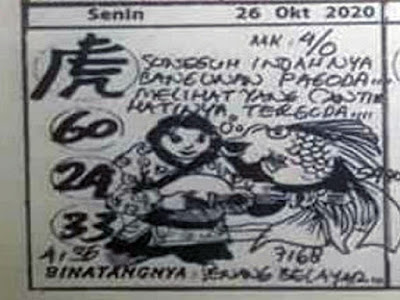 Senin 26 Okt 2020
MK: 4/0
虎
SUNGGUH INDAHNYA
BANGUNAN PAGODA....
MELIHAT YANG CANTIK
HATINYA TERGODA....
60
24
33
A: 36
7168
BINATANGNYA: SENANG BELAYAR...